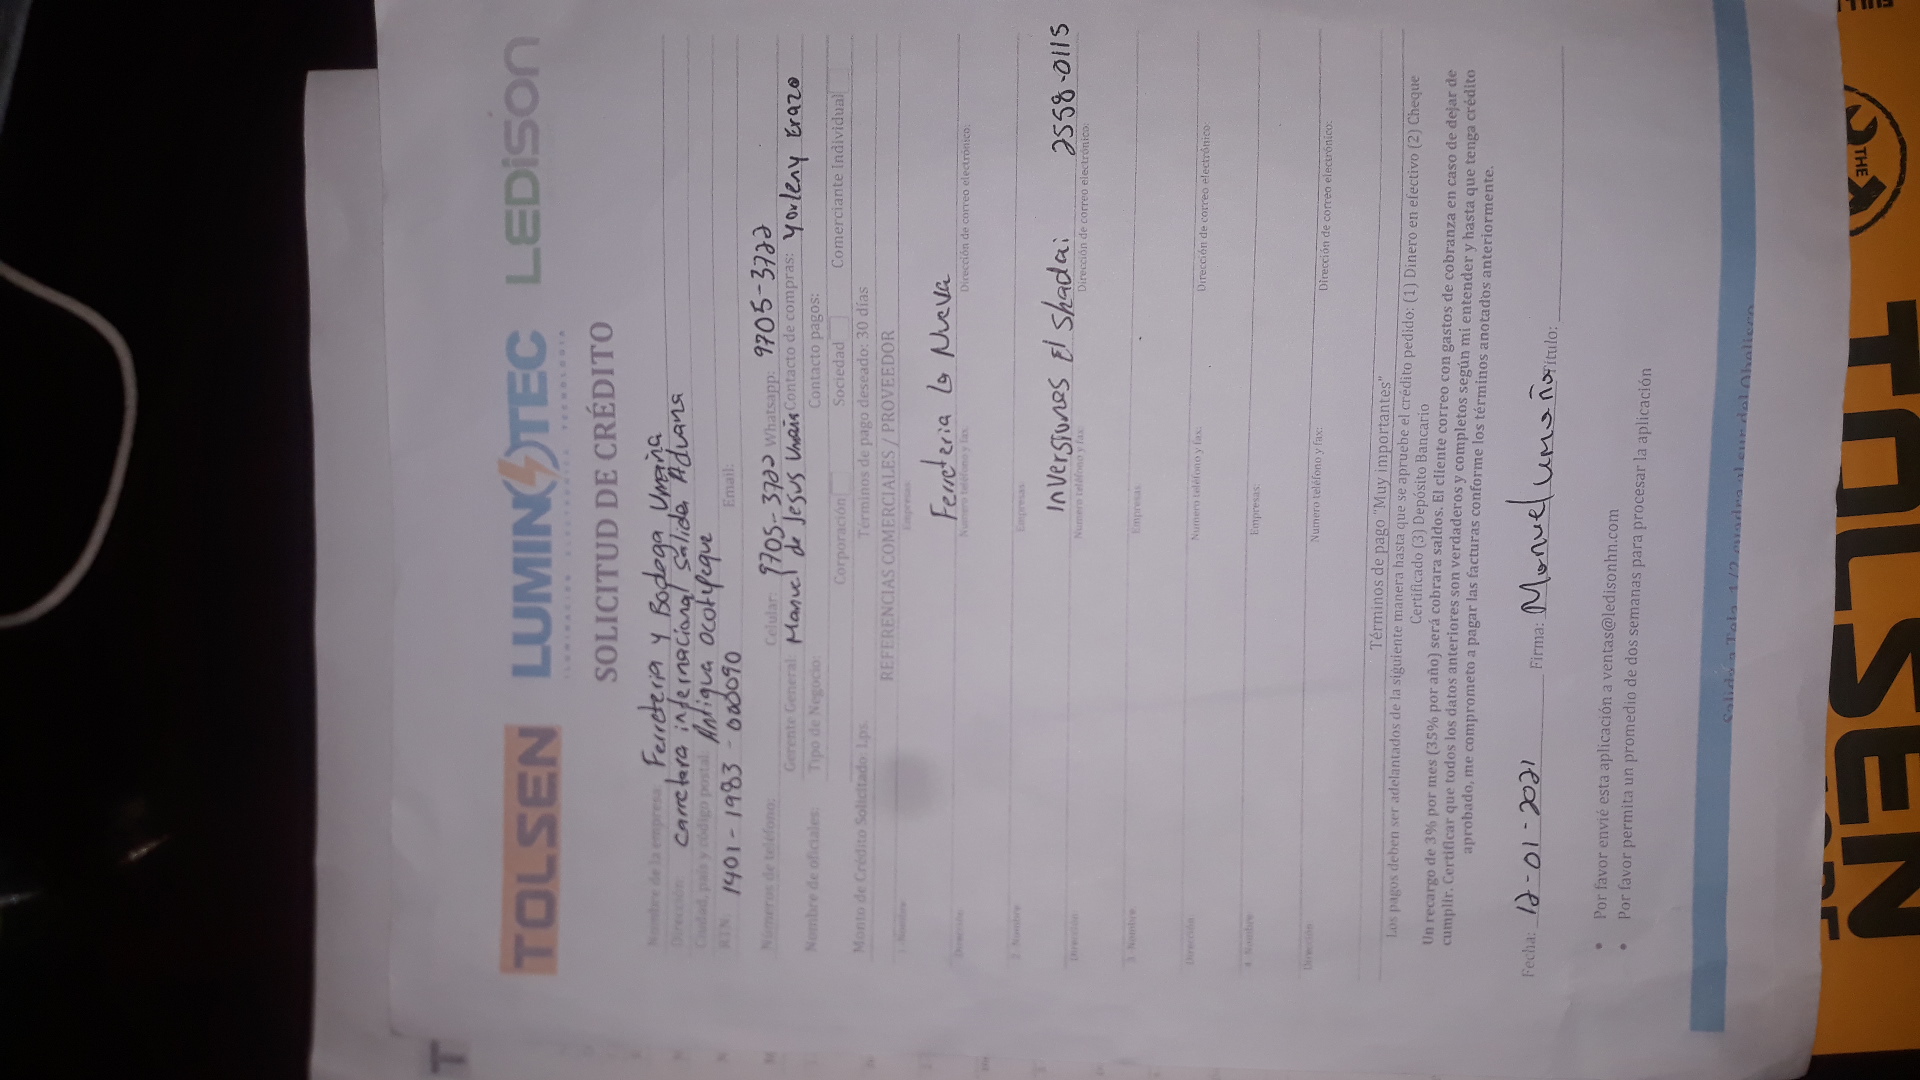 T
TOLSEN LUMINOTEC LEDISON
ILUMINACION ELECTRONICA TECNOLOGIA
SOLICITUD DE CRÉDITO
Nombre de la empresa: Ferreteria y Bodega Umaña
Dirección: carretara internacional Salida Aduana
Ciudad, país y código postal: Antigua ocotepeque
RTN: 1401-1983-000090 Email:
Números de teléfono: Celular: 9705-3722 Whatsapp: 9705-3722
Gerente General: Manuel de Jesus Umaña Contacto de compras: Yorleny Erazo
Nombre de oficiales: Tipo de Negocio: Contacto pagos:
Corporación Sociedad Comerciante Individual
Monto de Crédito Solicitado: Lps. Términos de pago deseado: 30 días
REFERENCIAS COMERCIALES / PROVEEDOR
1. Nombre Empresas
Ferreteria la Nueva
Dirección Numero teléfono y fax. Dirección de correo electrónico:
2. Nombre Empresas
Inversiones El Shadai 2558-0115
Dirección Numero teléfono y fax: Dirección de correo electrónico:
3. Nombre. Empresas
Dirección. Numero teléfono y fax: Dirección de correo electrónico:
4. Nombre Empresas:
Dirección Numero teléfono y fax: Dirección de correo electrónico:
Términos de pago "Muy importantes"
Los pagos deben ser adelantados de la siguiente manera hasta que se apruebe el crédito pedido: (1) Dinero en efectivo (2) Cheque
Certificado (3) Depósito Bancario
Un recargo de 3% por mes (35% por año) será cobrara saldos. El cliente correo con gastos de cobranza en caso de dejar de
cumplir. Certificar que todos los datos anteriores son verdaderos y completos según mi entender y hasta que tenga crédito
aprobado, me comprometo a pagar las facturas conforme los términos anotados anteriormente.
Fecha: 12-01-2021 Firma: Manuel Umaña Titulo:
• Por favor envié esta aplicación a ventas@ledisonhn.com
• Por favor permita un promedio de dos semanas para procesar la aplicación
Salida a Tela, 1/2 cuadra al sur del Obelisco
TOLSEN
THE